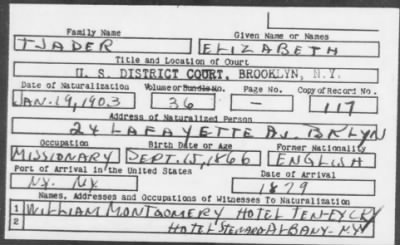 Family Name Given Name or Names
TJADER ELIZABETH
Title and Location of Court
U. S. DISTRICT COURT, BROOKLYN, N.Y.
Date of Naturalization Volume or Bundle No. Page No. Copy of Record No.
JAN. 19, 1903 36 — 117
Address of Naturalized Person
24 LAFAYETTE AV. BKLYN
Occupation Birth Date or Age Former Nationality
MISSIONARY SEPT. 15, 1866 ENGLISH
Port of Arrival in the United States Date of Arrival
NY. NY. 1879
Names, Addresses and Occupations of Witnesses To Naturalization
1 WILLIAM MONTGOMERY HOTEL TEN-EYCK
2 HOTEL STEWARD ALBANY-NY